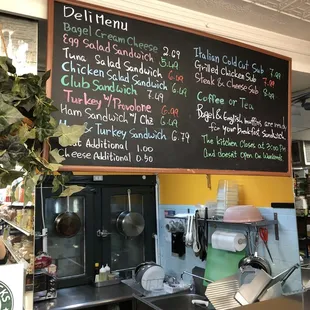 Deli Menu
Bagel Cream Cheese 2.09
Egg Salad Sandwich 5.49
Tuna Salad Sandwich 6.09
Chicken Salad Sandwich 6.49
Club Sandwich 7.49
Turkey w/ Provolone 6.99
Ham Sandwich w/ Chz 6.49
& Turkey Sandwich 6.79
Meat Additional 1.00
Cheese Additional 0.50
Italian Cold Cut Sub 7.99
Grilled Chicken Sub 7.99
Steak & Cheese Sub 8.99
Coffee or Tea
Bagel and English muffins are made
for your breakfast Sandwich.
The kitchen Closes at 3:00 Pm
and doesn't Open on Weekends